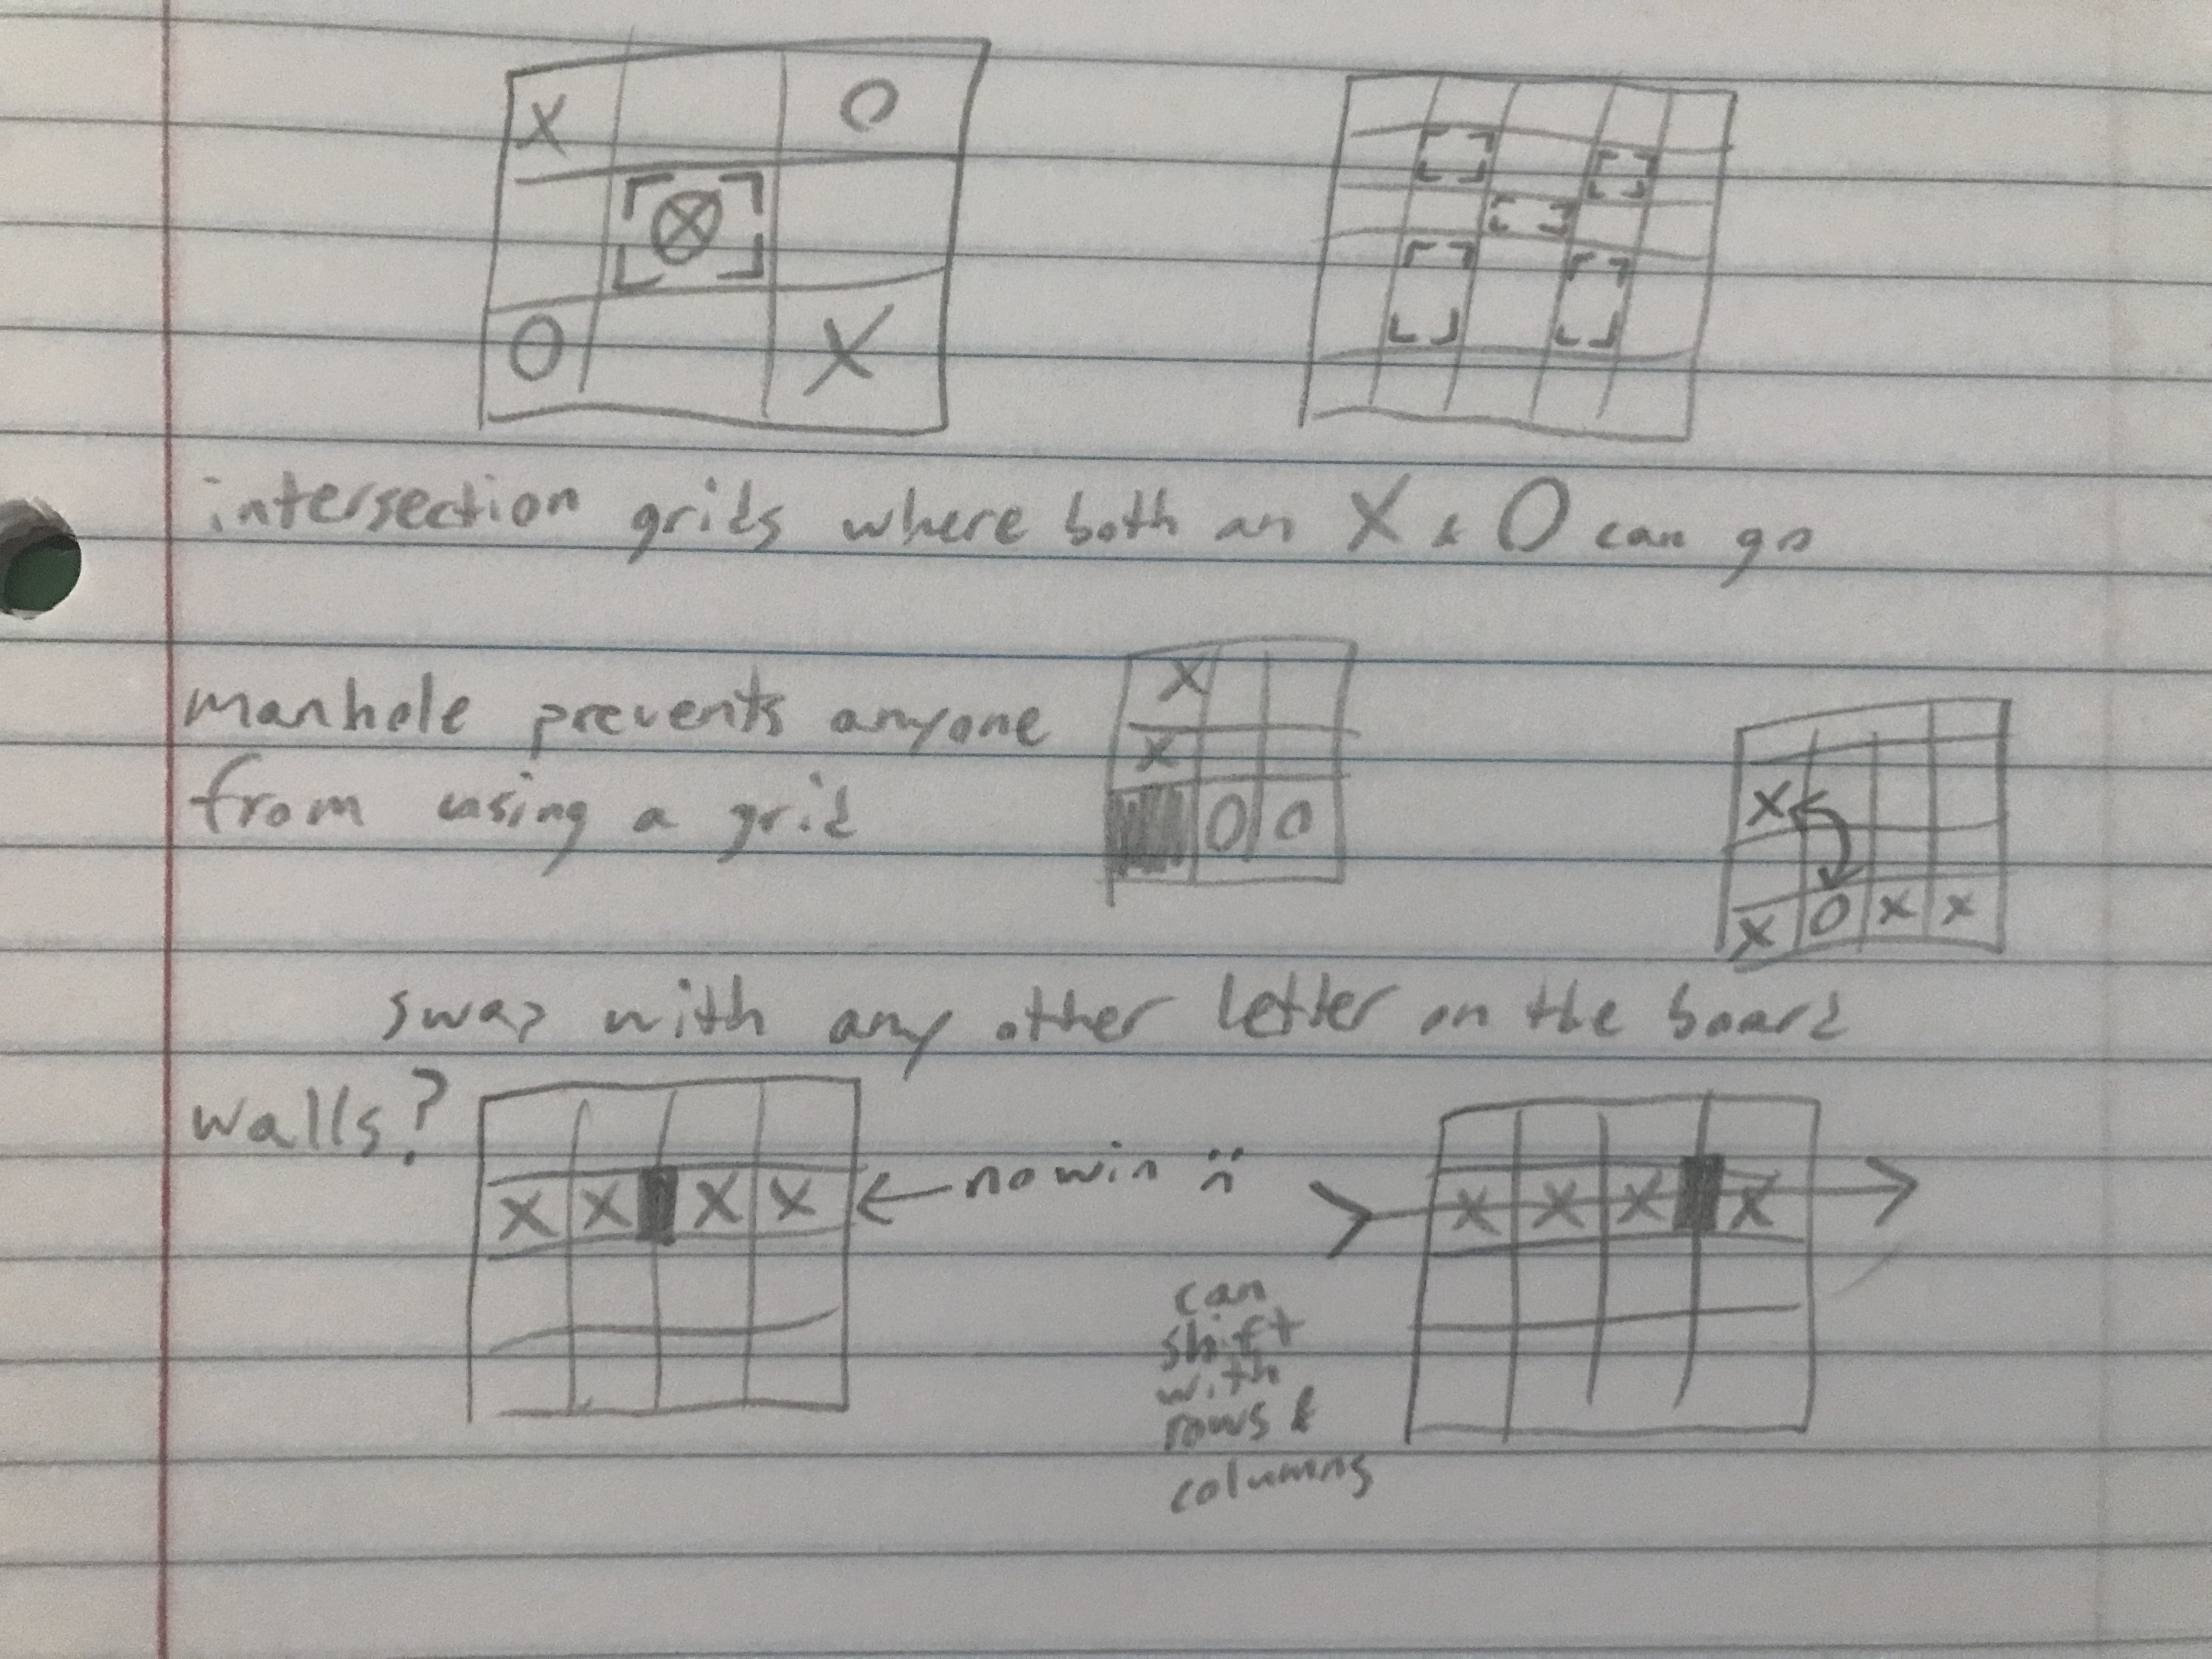 X O
⊗
O X
intersection grids where both an X & O can go
X
manhole prevents anyone
X
from using a grid
O O
X
X O X X
swap with any other letter on the board
walls?
X X X X ← no win :(
X X X X
can
shift
with
rows &
columns